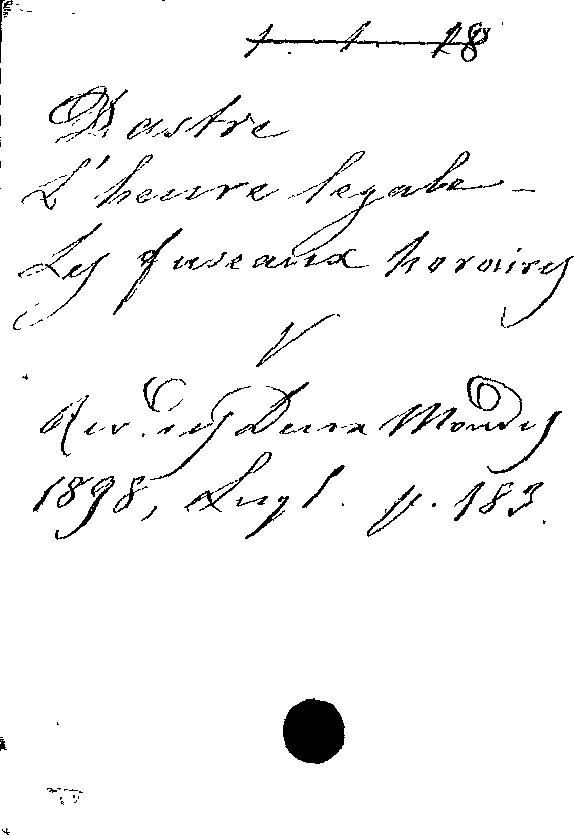 1. 1. 18
Dastre
L'heure legale -
Les fuseaux horaires
V
Rev. des Deux Mondes
1898, Lugl. p. 183.